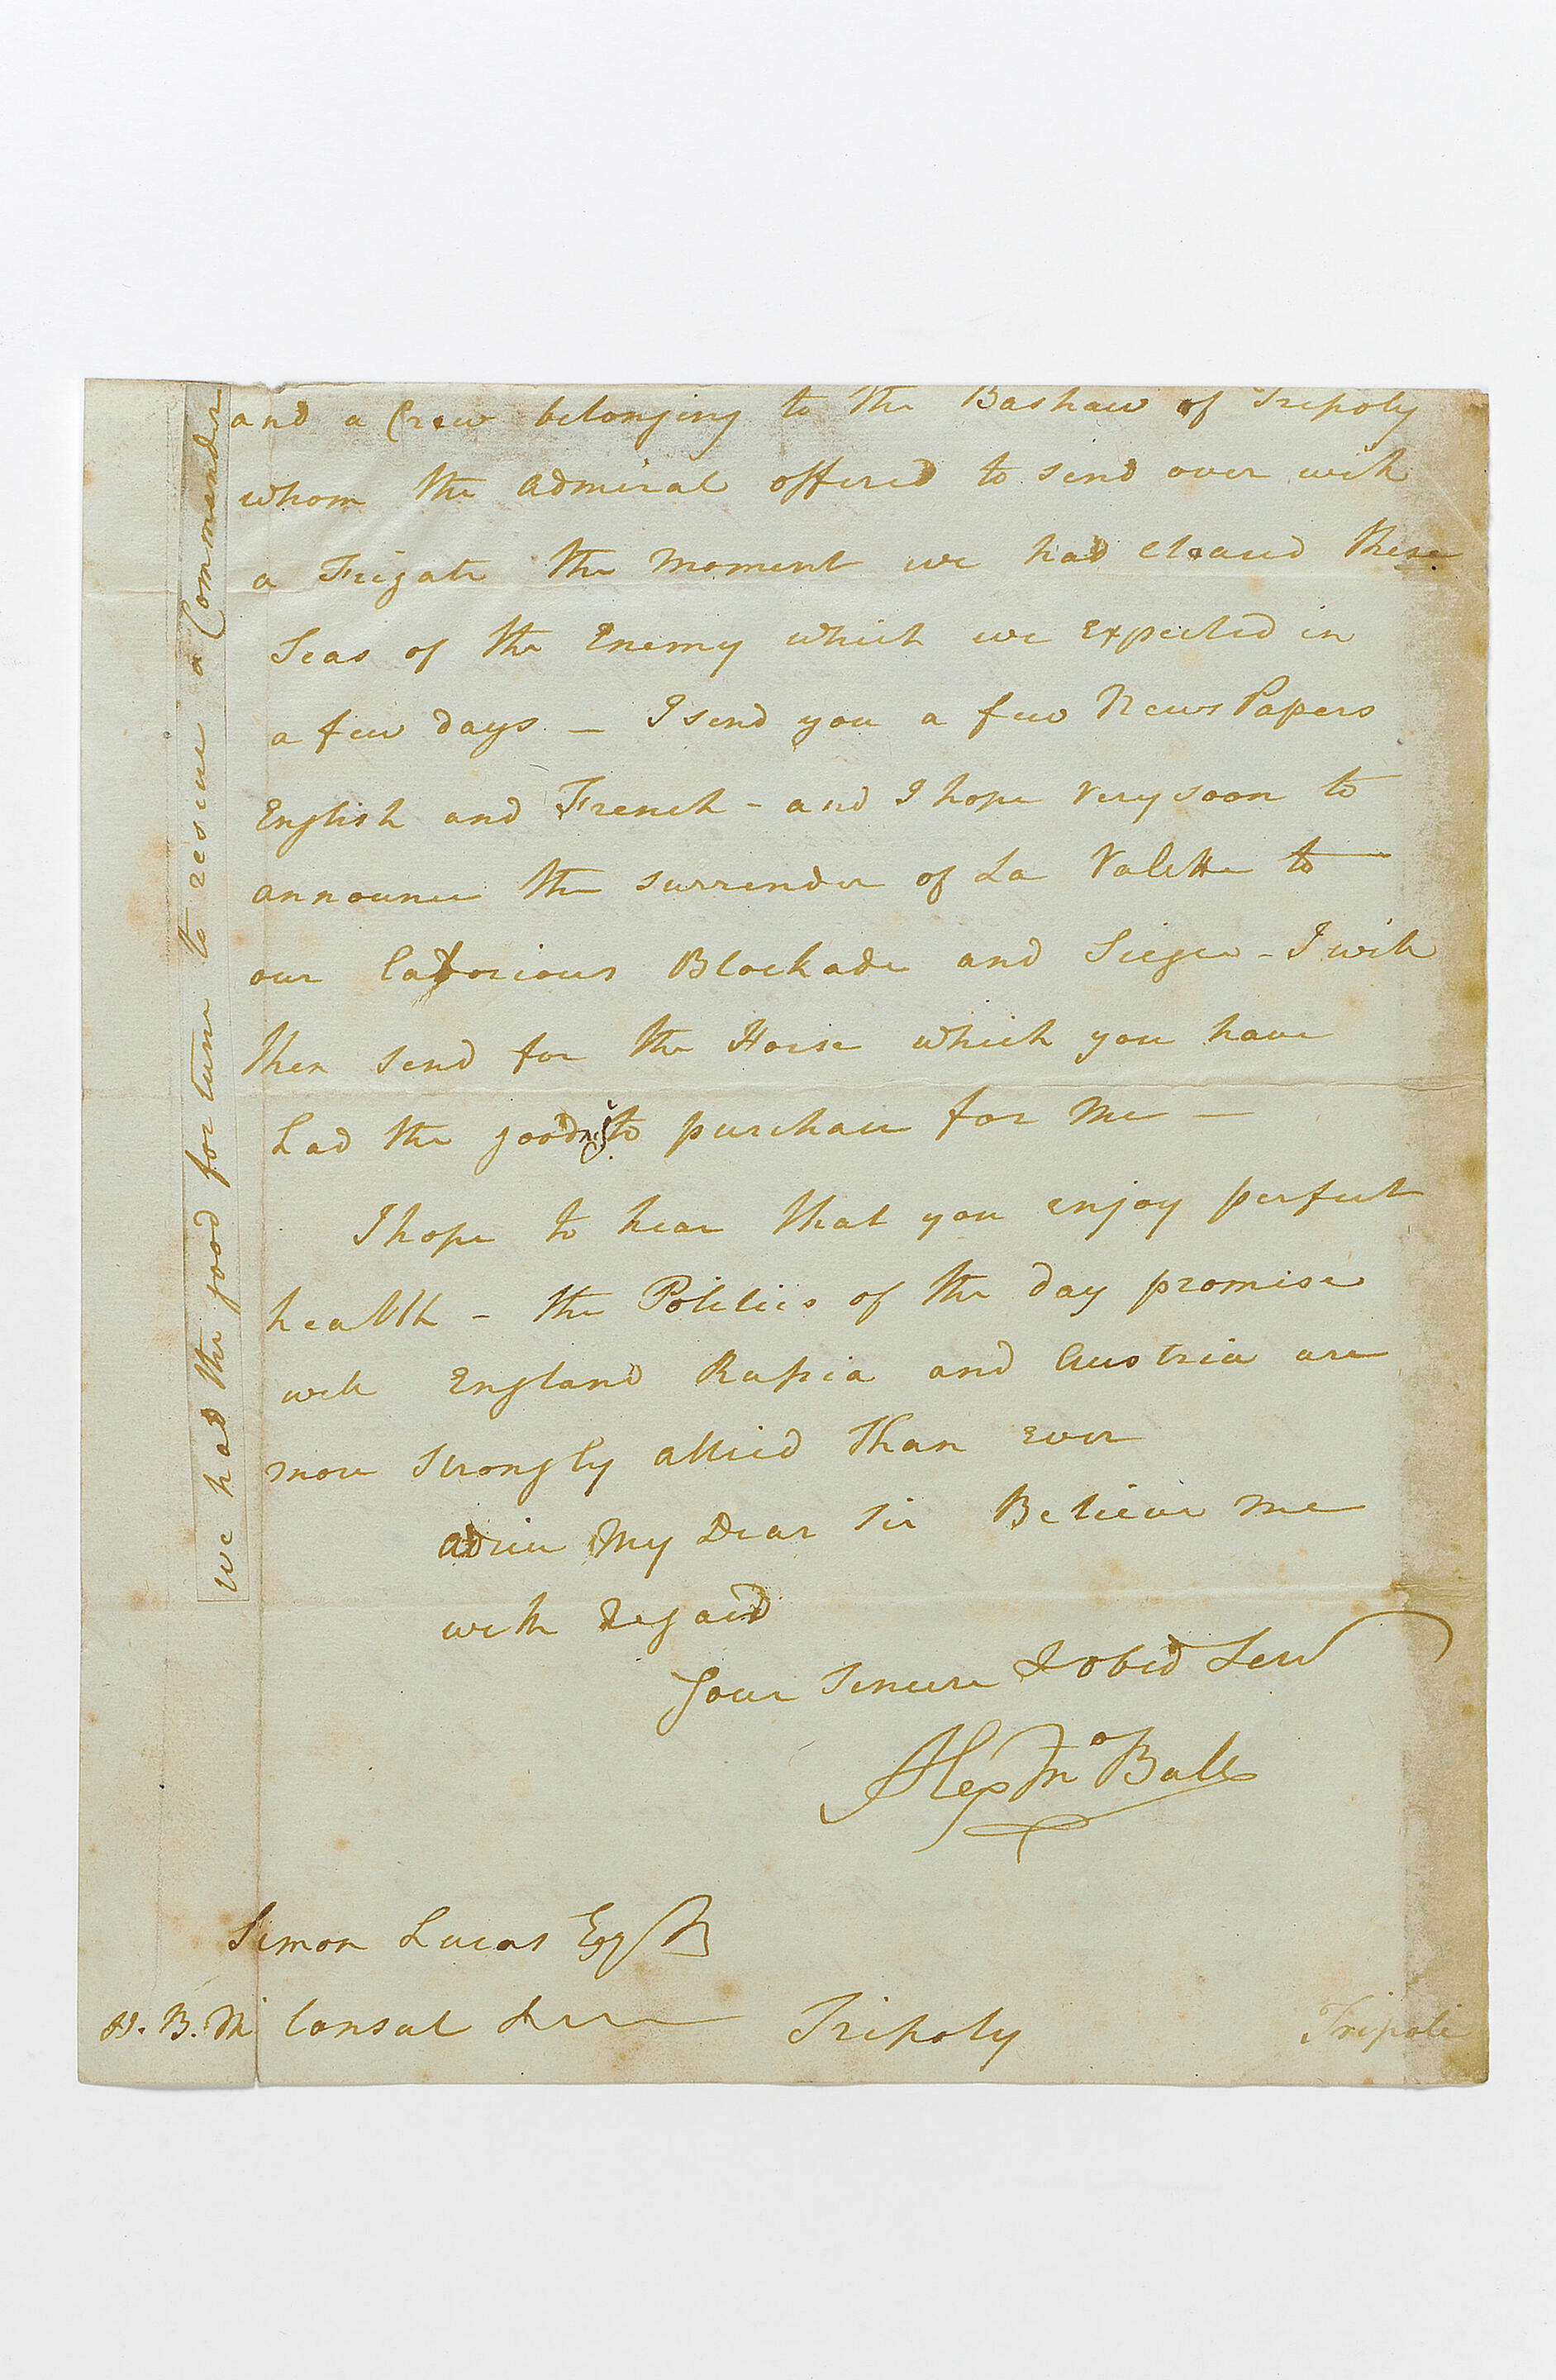 we had the good fortune to rescue a Commander
and a Crew belonging to the Bashaw of Tripoly
whom the Admiral offered to send over with
a Frigate the moment we had cleared these
Seas of the Enemy which we Expected in
a few days – I send you a few News Papers
English and French – and I hope very soon to
announce the surrender of La Valette to
our laborious Blockade and Siege – I will
then send for the Horse which you have
had the goodness to purchase for me –
I hope to hear that you enjoy perfect
health – the Politics of the day promise
well England Russia and Austria are
more strongly allied than ever
adieu My Dear Sir Believe me
with Regard
Your Sincere & obed Serv
Alexr Jno Ball
Simon Lucas Esqr
H. B. M Consul &c Tripoly
Tripoli